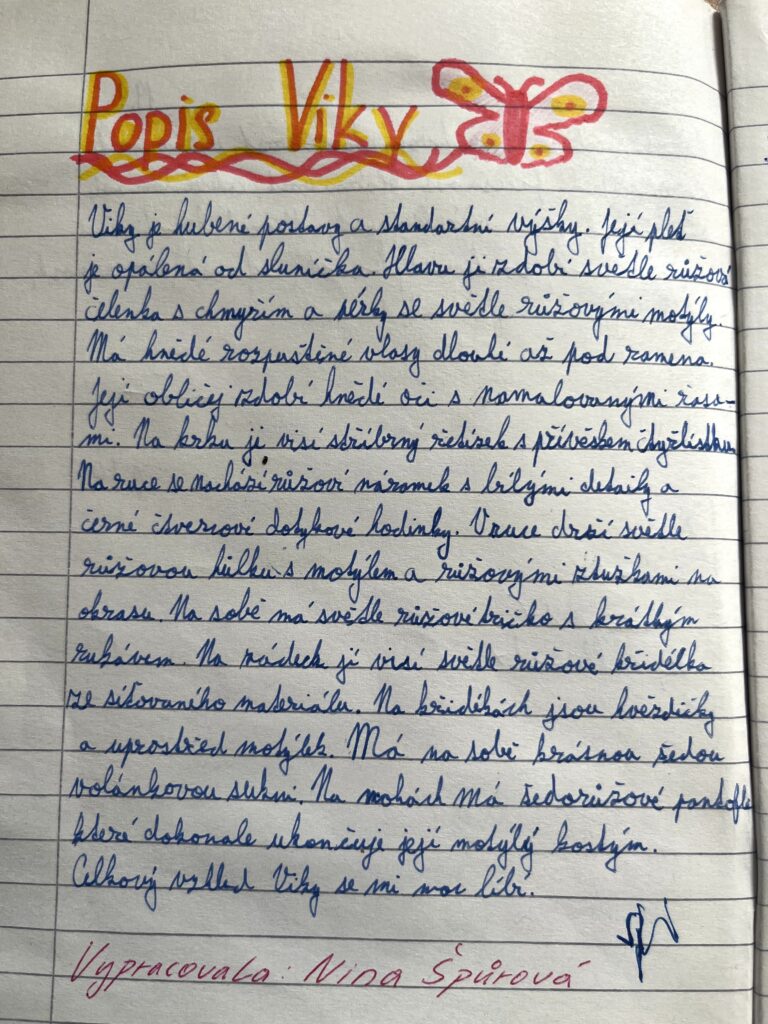 Popis Viky
Viky je hubené postavy a standartní výšky. Její pleť
je opálená od sluníčka. Hlavu ji zdobí světle růžová
čelenka s chmýřím a pérky se světle růžovými motýly.
Má hnědé rozpuštěné vlasy dlouhé až pod ramena.
Její obličej zdobí hnědé oči s namalovanými řasa-
mi. Na krku ji visí stříbrný řetízek s přívěškem čtyřlístku.
Na ruce se nachází růžový náramek s bílými detaily a
černé čtvercové dotykové hodinky. V ruce drží světle
růžovou hůlku s motýlem a růžovými stužkami na
okrasu. Na sobě má světle růžové tričko s krátkým
rukávem. Na zádech jí visí světle růžové křidélka
ze síťovaného materiálu. Na křidélkách jsou hvězdičky
a uprostřed motýlek. Má na sobě krásnou šedou
volánkovou sukni. Na nohách má šedorůžové pantofle
které dokonale ukončuje její motýlý kostým.
Celkový vzhled Viky se mi moc líbí.
Vypracovala: Nina Špůrová